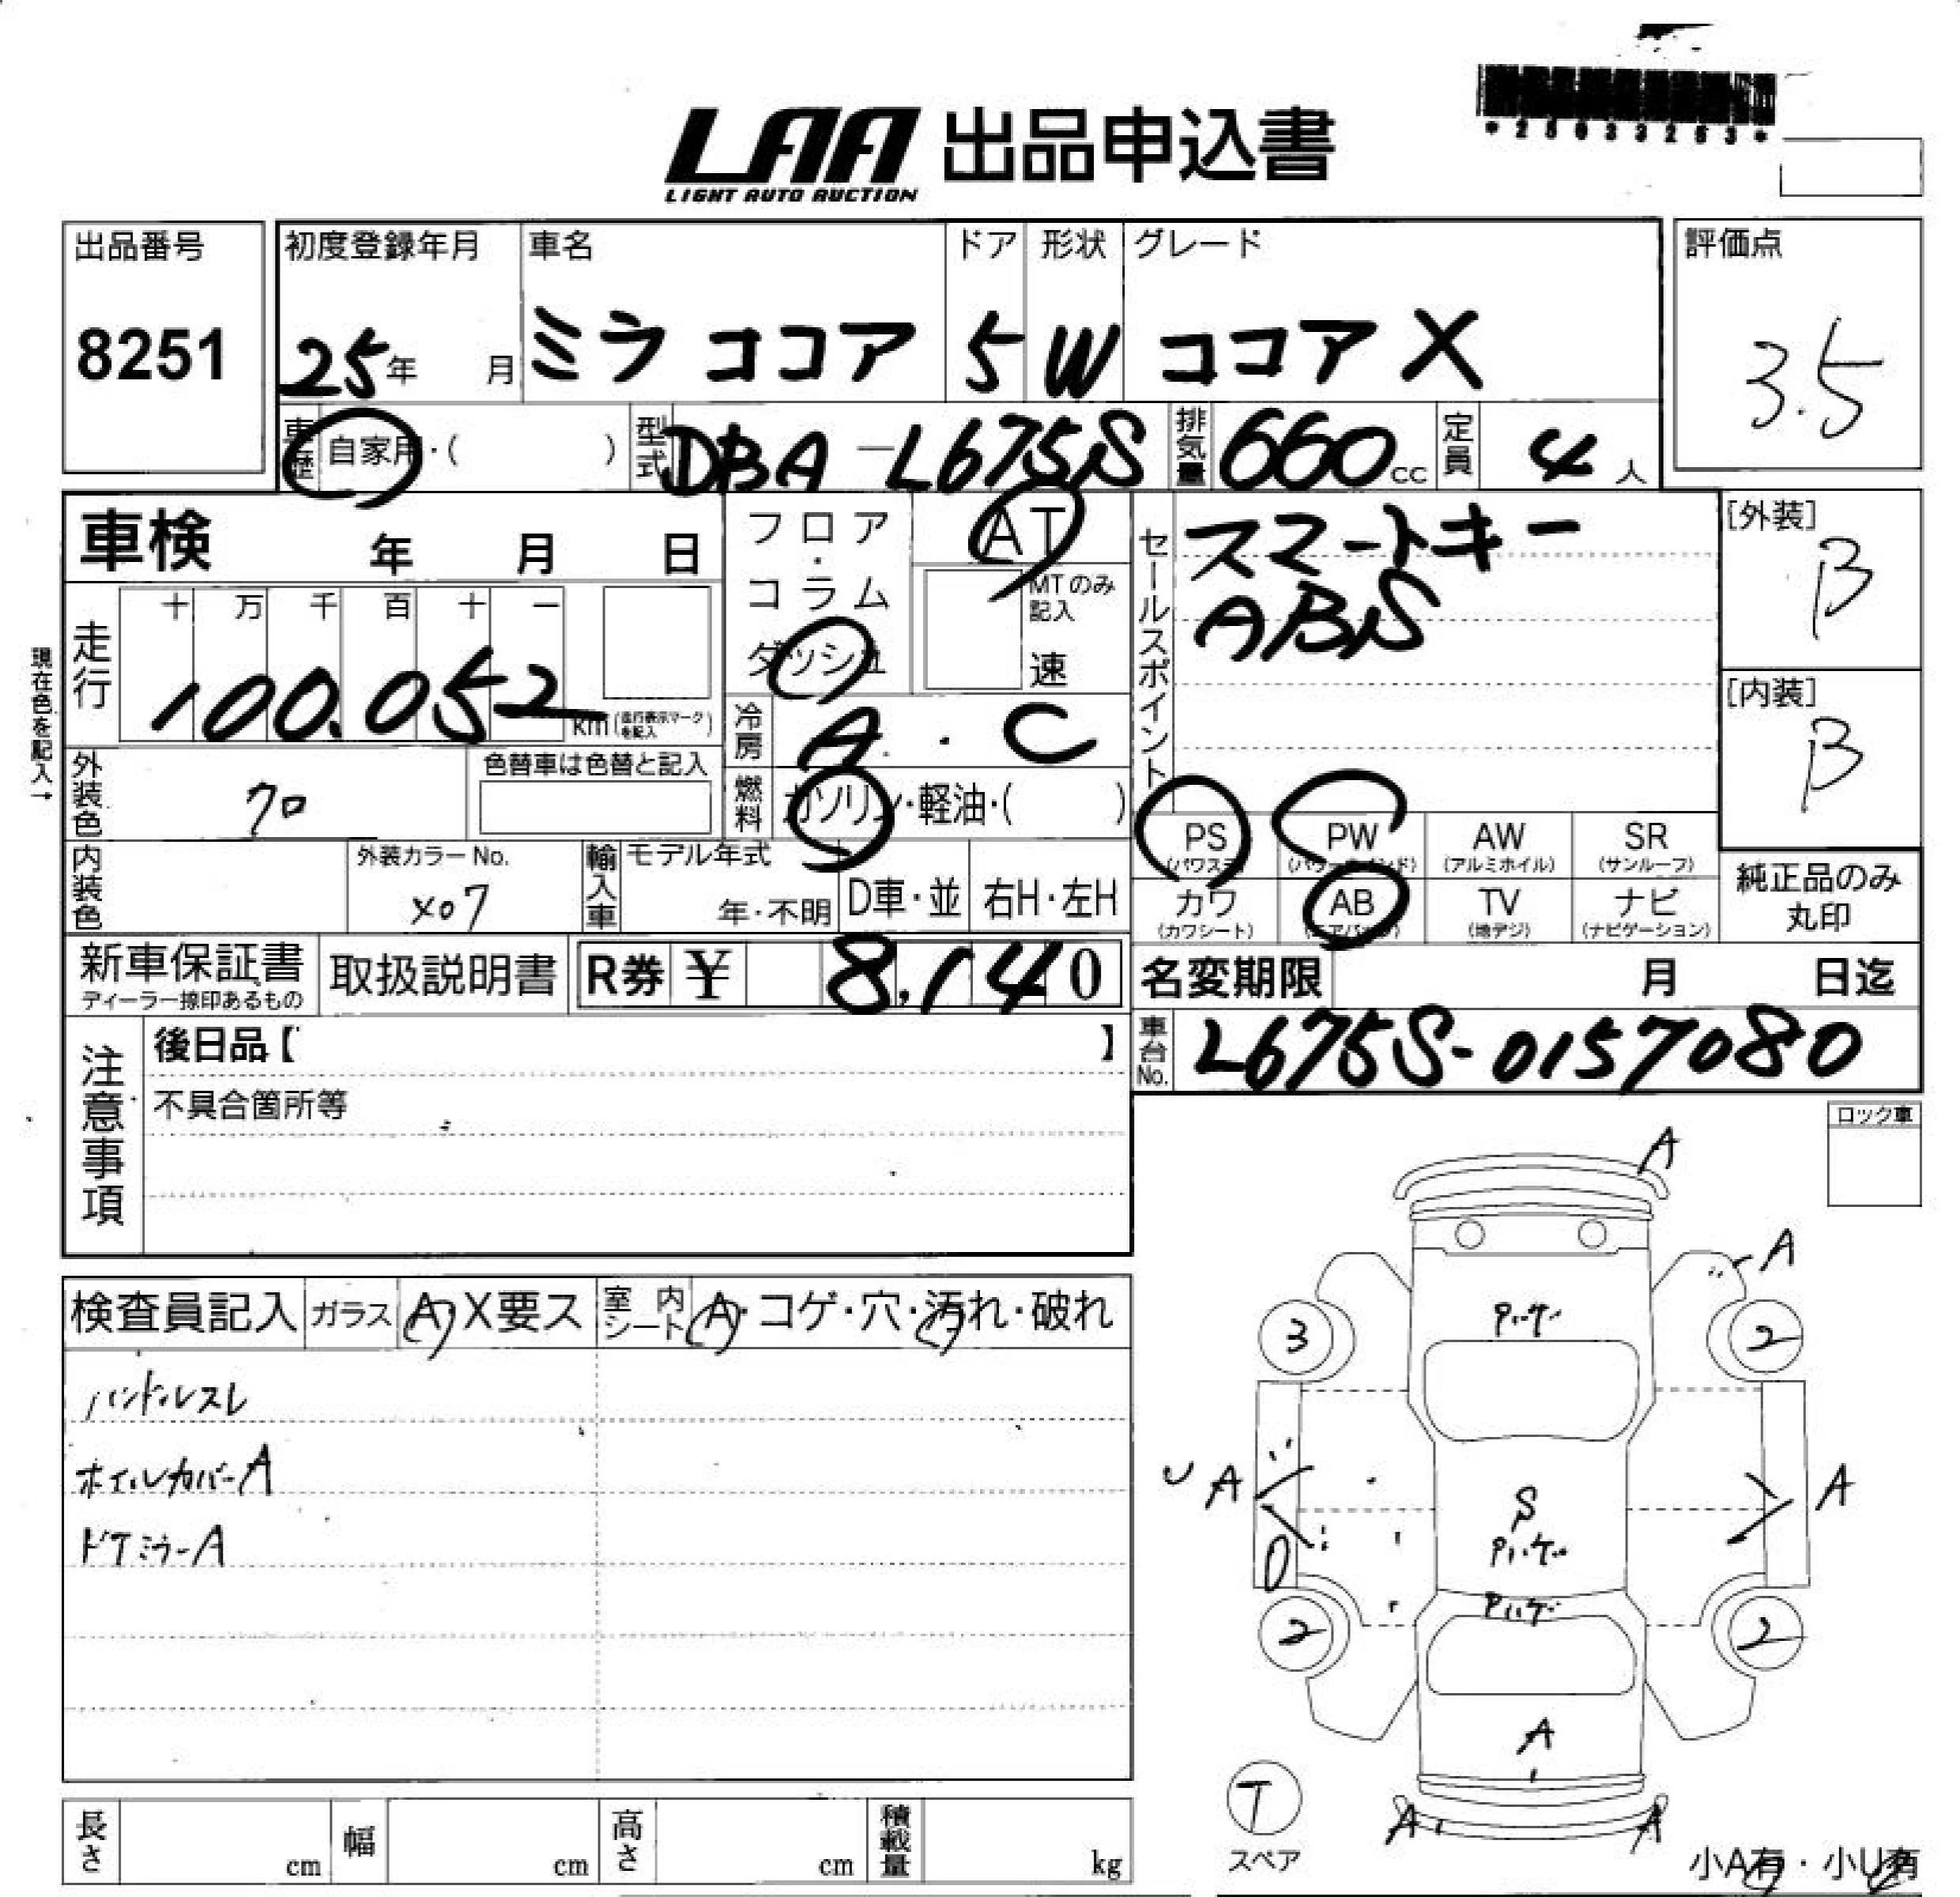 *25033253*
LAA 出品申込書
LIGHT AUTO AUCTION
出品番号
8251
初度登録年月
25年 月
車名
ミラ ココア
ドア
5
形状
W
グレード
ココア X
評価点
3.5
車歴 自家用・( )
型式 DBA-L675S
排気量 660cc
定員 4人
車検 年 月 日
フロア・コラム
ダッシュ
AT
MTのみ記入
速
セールスポイント
スマートキー
ABS
[外装]
B
[内装]
B
現在色を記入→
走行
十 万 千 百 十 一
100.052
km(走行表示マークを記入)
冷房 A・C
外装色 クロ
色替車は色替と記入
燃料 ガソリン・軽油・( )
PS
(パワステ)
PW
(パワーウインド)
AW
(アルミホイル)
SR
(サンルーフ)
カワ
(カワシート)
AB
(エアバッグ)
TV
(地デジ)
ナビ
(ナビゲーション)
純正品のみ
丸印
内装色
外装カラーNo.
X07
輸入車
モデル年式
年・不明
D車・並
右H・左H
新車保証書
ディーラー捺印あるもの
取扱説明書
R券 ¥ 8,140
名変期限 月 日迄
車台No. L675S-0157080
注意事項
後日品【 】
不具合箇所等
ロック車
検査員記入
ガラス A・X要ス
室内シート A・コゲ・穴・汚れ・破れ
ハンドルスレ
ホイルカバーA
ドアミラーA
A
A
3
2
A
A
S
2
2
A
T
スペア
A
A
小A有・小U有
長さ cm
幅 cm
高さ cm
積載量 kg